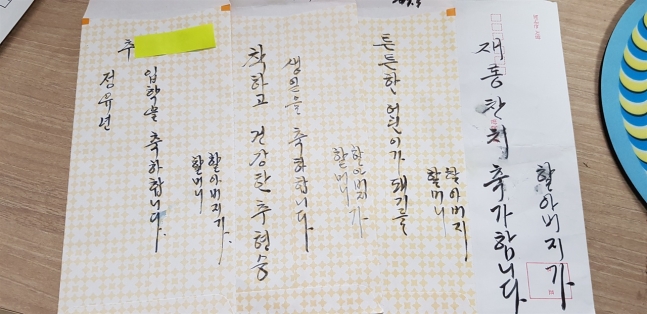 추
입학을 축하합니다.
할아버지가.
할머니
정유년
생일을 축하합니다
착하고 건강한 추형승
할아버지가
할머니
튼튼한 어린이가 되기를
할아버지
할머니
재롱잔치 축가합니다
할아버지가.